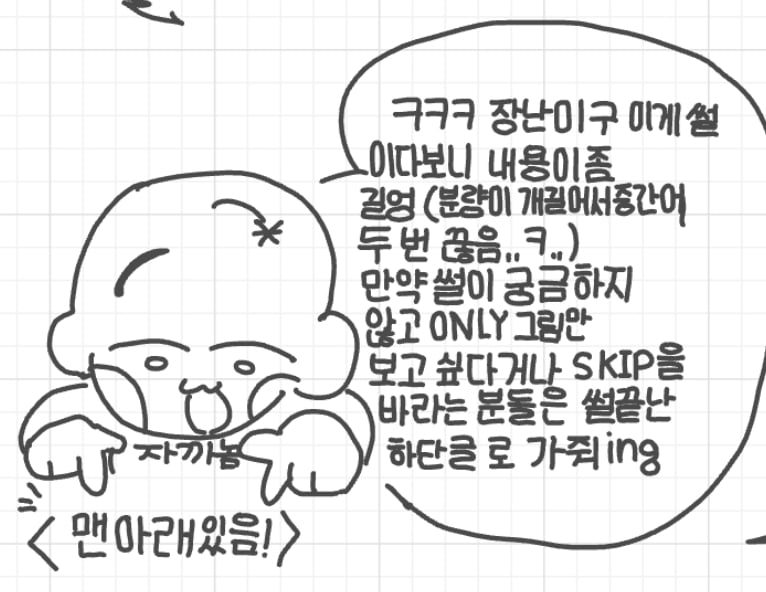 ㅋㅋㅋ 장난이구 이게 썰
이다보니 내용이좀
길엉 (분량이 개길어서중간에
두 번 끊음..ㅋ..)
만약 썰이 궁금하지
않고 ONLY 그림만
보고 싶다거나 SKIP을
바라는 분들은 썰끝난
하단글로 가줘ing
자까놈
<맨아래있음!>